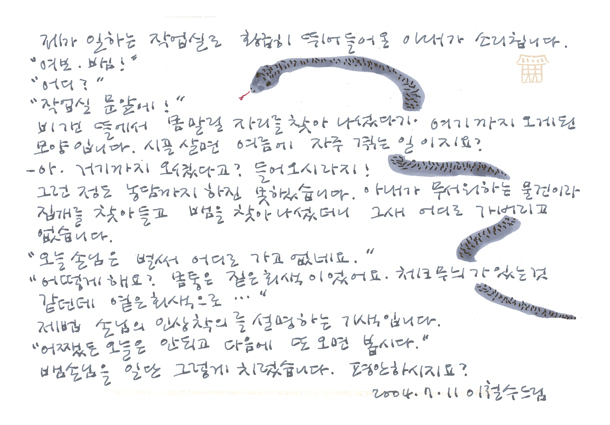 제가 일하는 작업실로 황급히 뛰어들어온 아내가 소리칩니다.
"여보. 뱀!"
"어디?"
"작업실 문앞에!"
비개인 뜰에서 몸말릴 자리를 찾아 나섰다가 여기까지 오게된
모양입니다. 시골 살면 여름에 자주 겪는 일이지요?
-아. 거기까지 오셨다고? 들어오시라지!
그런 정도 농담까지 하진 못하겠습니다. 아내가 무서워하는 물건이라
집개를 찾아들고 뱀을 찾아나섰더니 그새 어디로 가버리고
없습니다.
"오늘 손님은 벌써 어디로 가고 없네요."
"어떻게 해요? 몸통은 짙은회색이었어요. 체크무늬가 있는것
같던데 옅은회색으로 …"
제법 손님의 인상착의를 설명하는 기색입니다.
"어쨌든 오늘은 안되고 다음에 또 오면 봅시다."
뱀손님을 일단 그렇게 치렀습니다. 평안하시지요?
2004.7.11 이철수드림